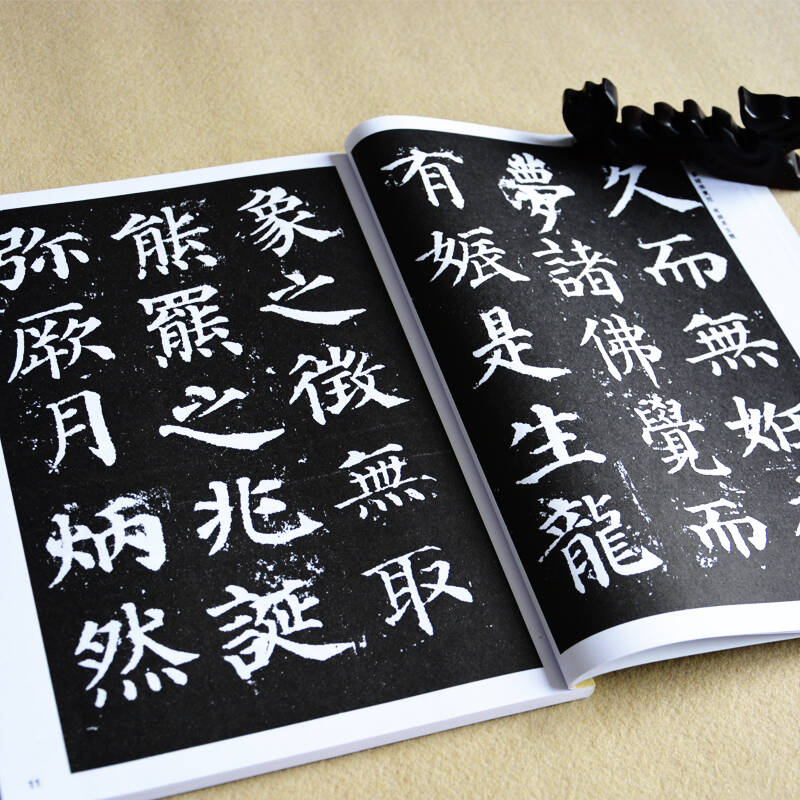 久而無姙
夢諸佛覺而
有娠是生龍
象之徵無取
熊羆之兆誕
弥厥月炳然
11